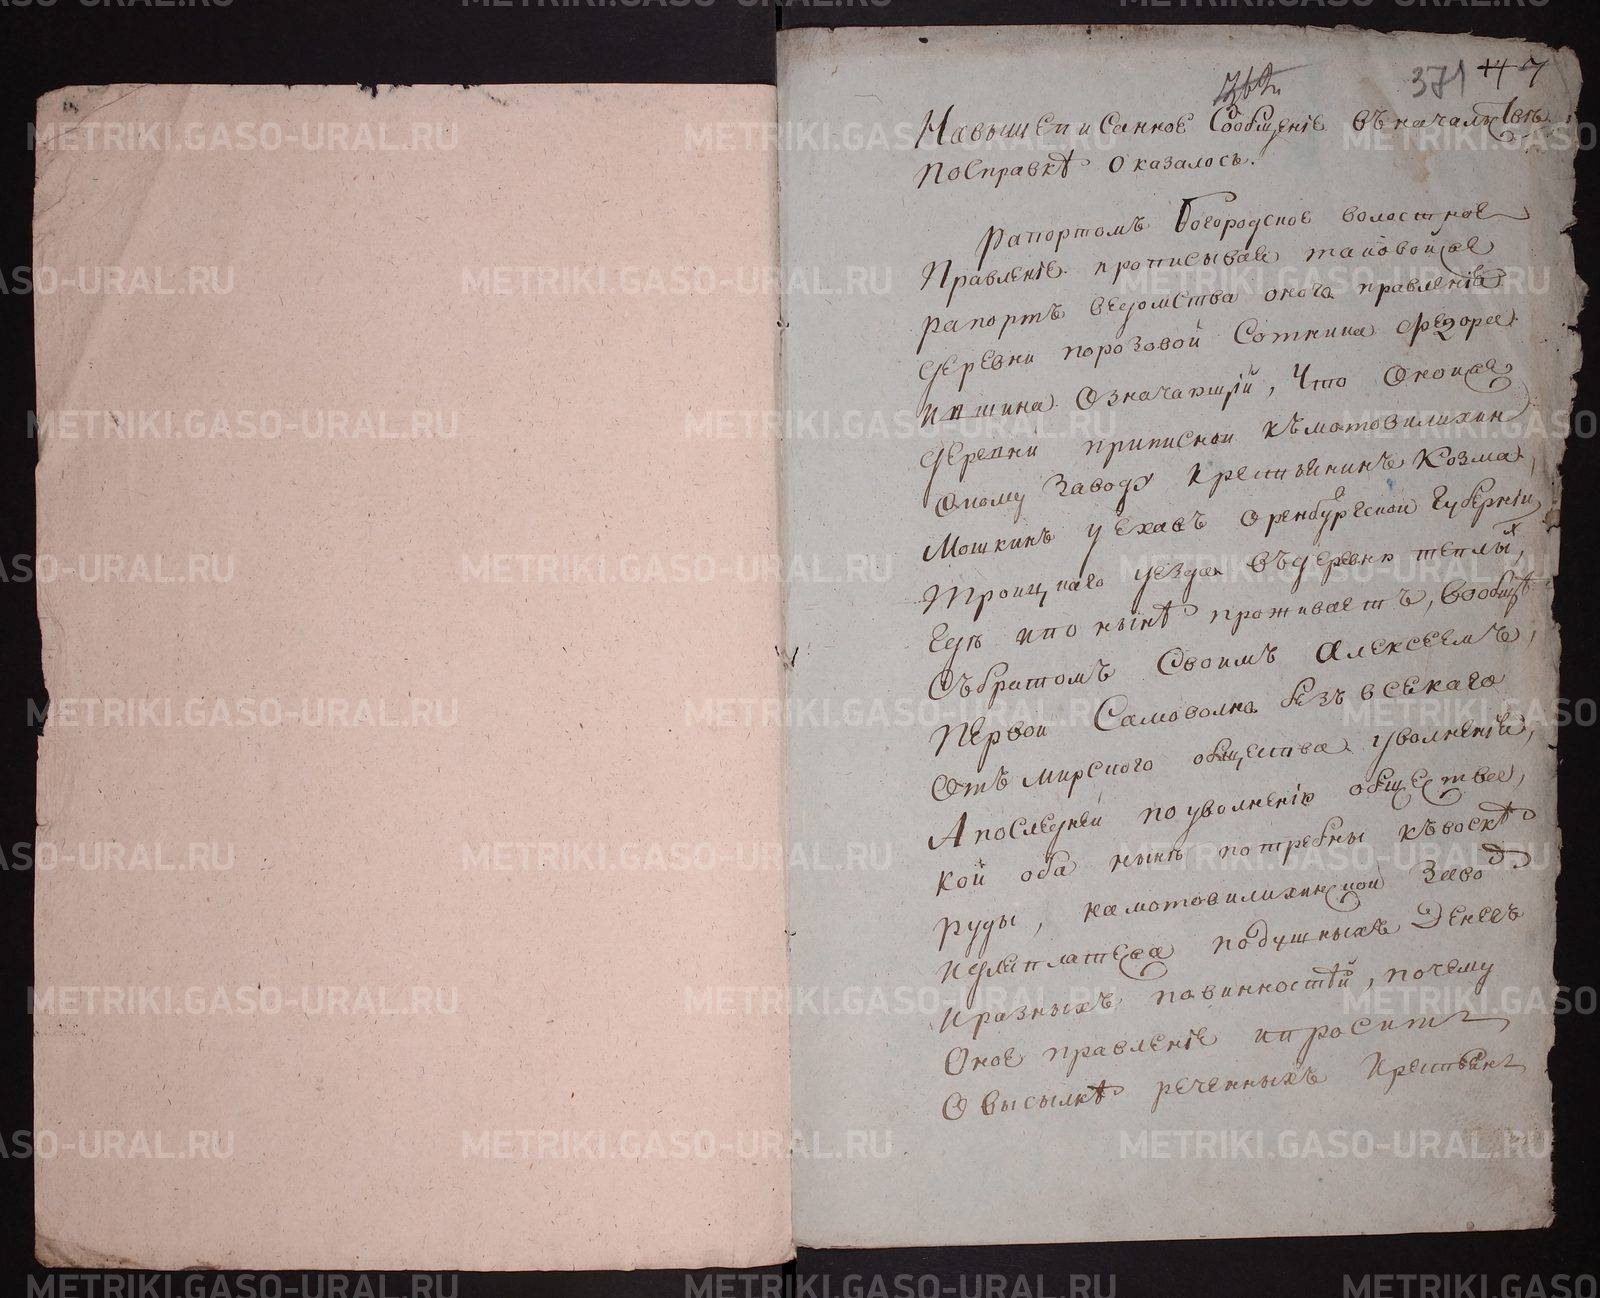 371 7
Навышеписанное Сообщение въначальствѣ
поСправкѣ Оказалось.
Рапортомъ Богородское волостное
Правленіе прописывая таковойже
рапортъ ведомства оного правленія
деревни порозовой Сотника Федора
Означающій, Что Оноиже
деревни приписной къмотовилихин
скому Заводу крестьянинъ Козма
Мошкинъ уехавъ Оренбургской Губерніи
Троицкаго уезда въдеревню теплыхъ,
Где ипо нынѣ проживаетъ, вообщѣ
Събратомъ Своимъ Алексеемъ,
Первой Самоволно безъ всекаго
Отъ мирского общества уволненія,
А последней поуволненію общества,
кои оба ныне потребны къвоскѣ
руды, намотовилихинской Завод
идлеплатежа подушныхъ Денегъ
иразныхъ повинностей, почему
Оное правленіе ипроситъ
О высылкѣ реченныхъ крестьянъ
METRIKI.GASO-URAL.RU